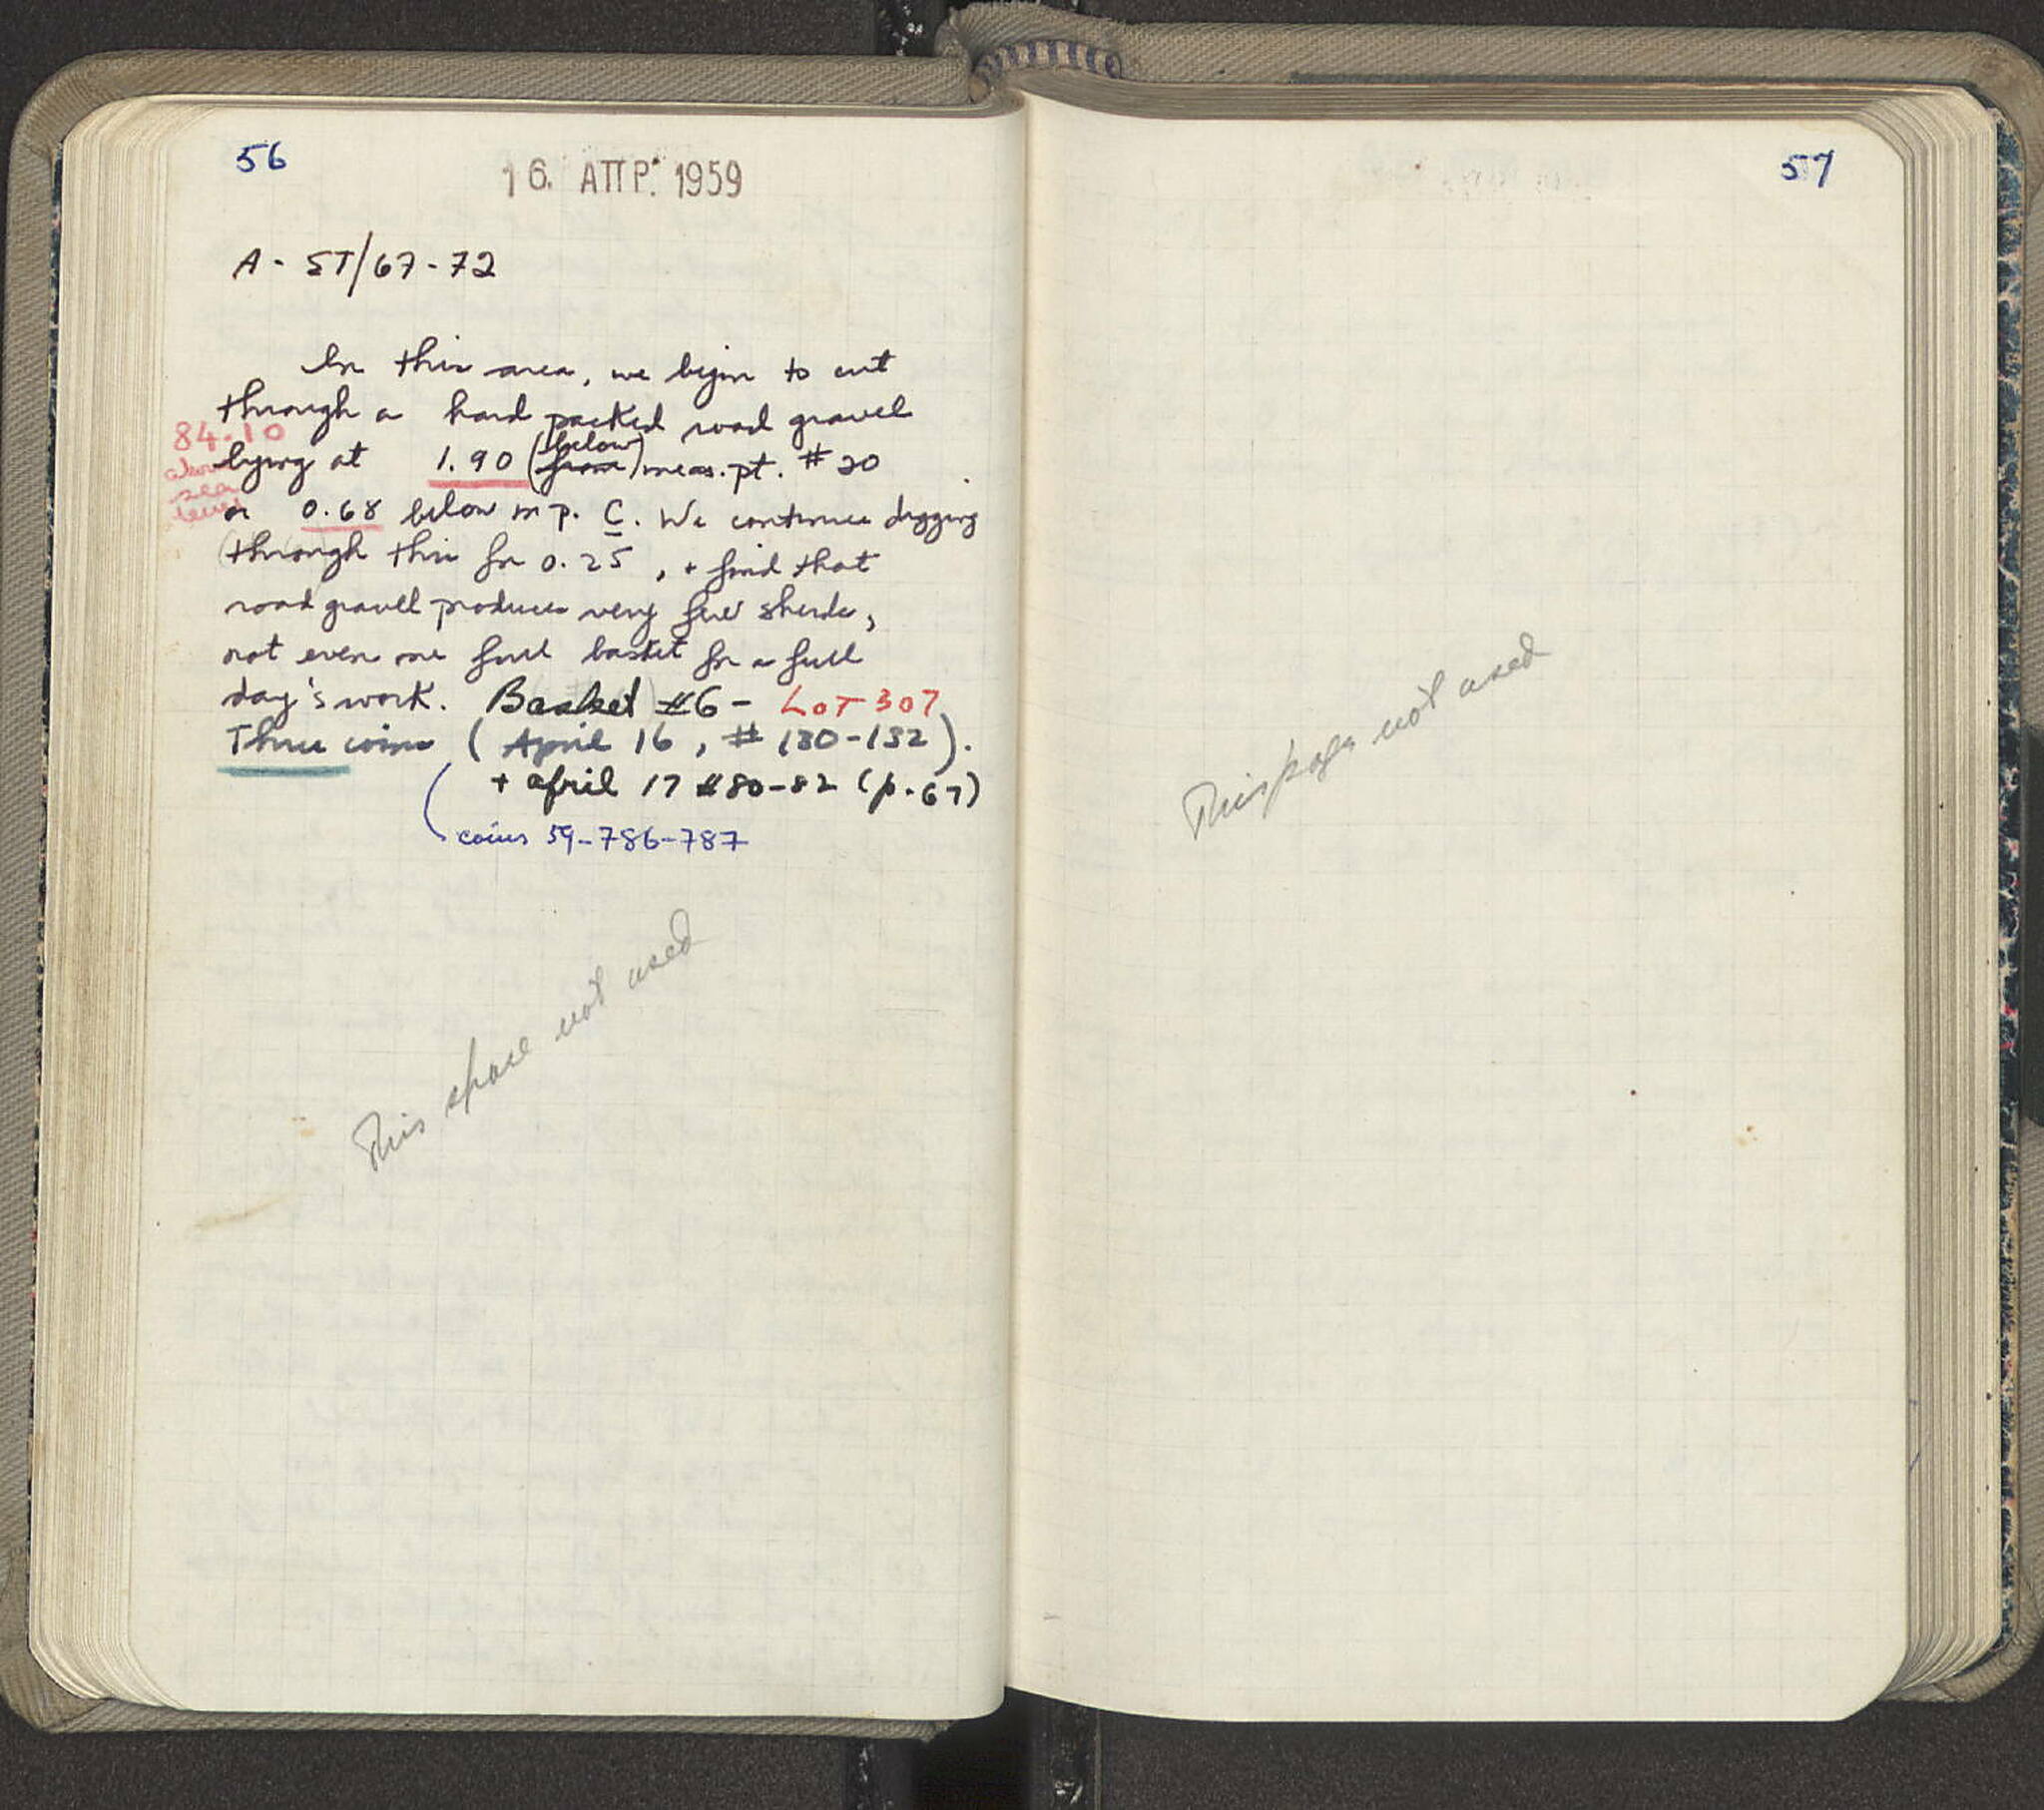 56
16. ΑΠΡ. 1959
A - ST/67-72
In this area, we begin to cut
through a hard packed road gravel
84.10
above
sea
level
lying at 1.90 (from) below meas. pt. # 20
or 0.68 below m p. C. We continue digging
through this for 0.25, + find that
road gravel produces very few sherds,
not even one full basket for a full
day's work. Basket #6 - LOT 307
Three coins (April 16, # 130-132).
+ April 17 #80-82 (p. 67)
coins 59-786-787
This space not used
57
This page not used